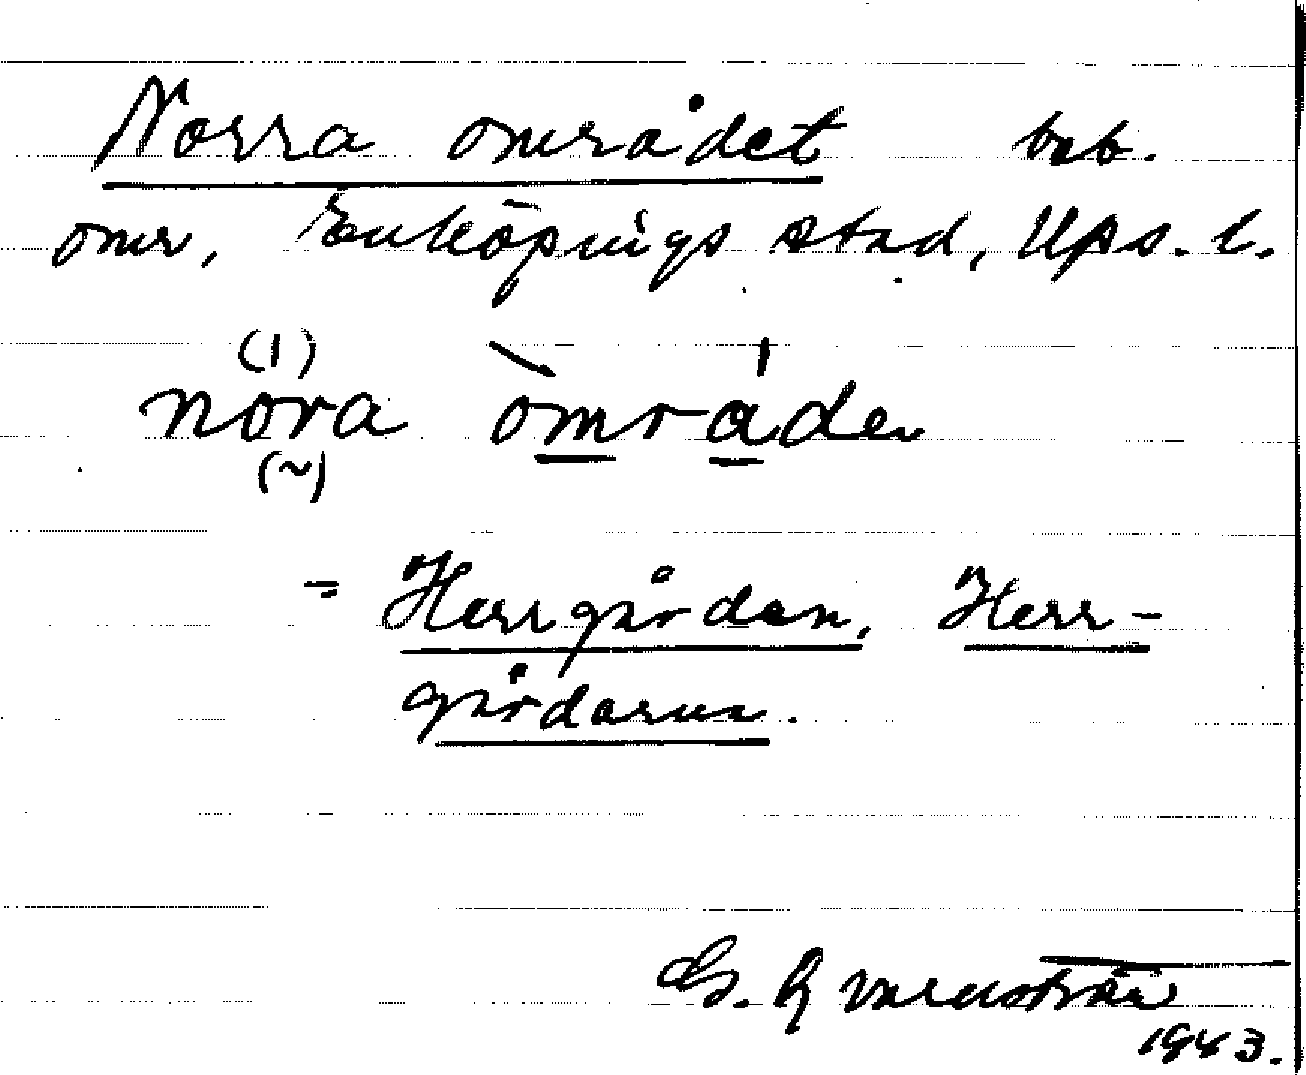 Norra området beb.
omr, Enköpings stad, Ups. l.
(ı)
nora område
(~)
= Herrgården, Herr-
gårdarna.
G. Qvarnström
1943.